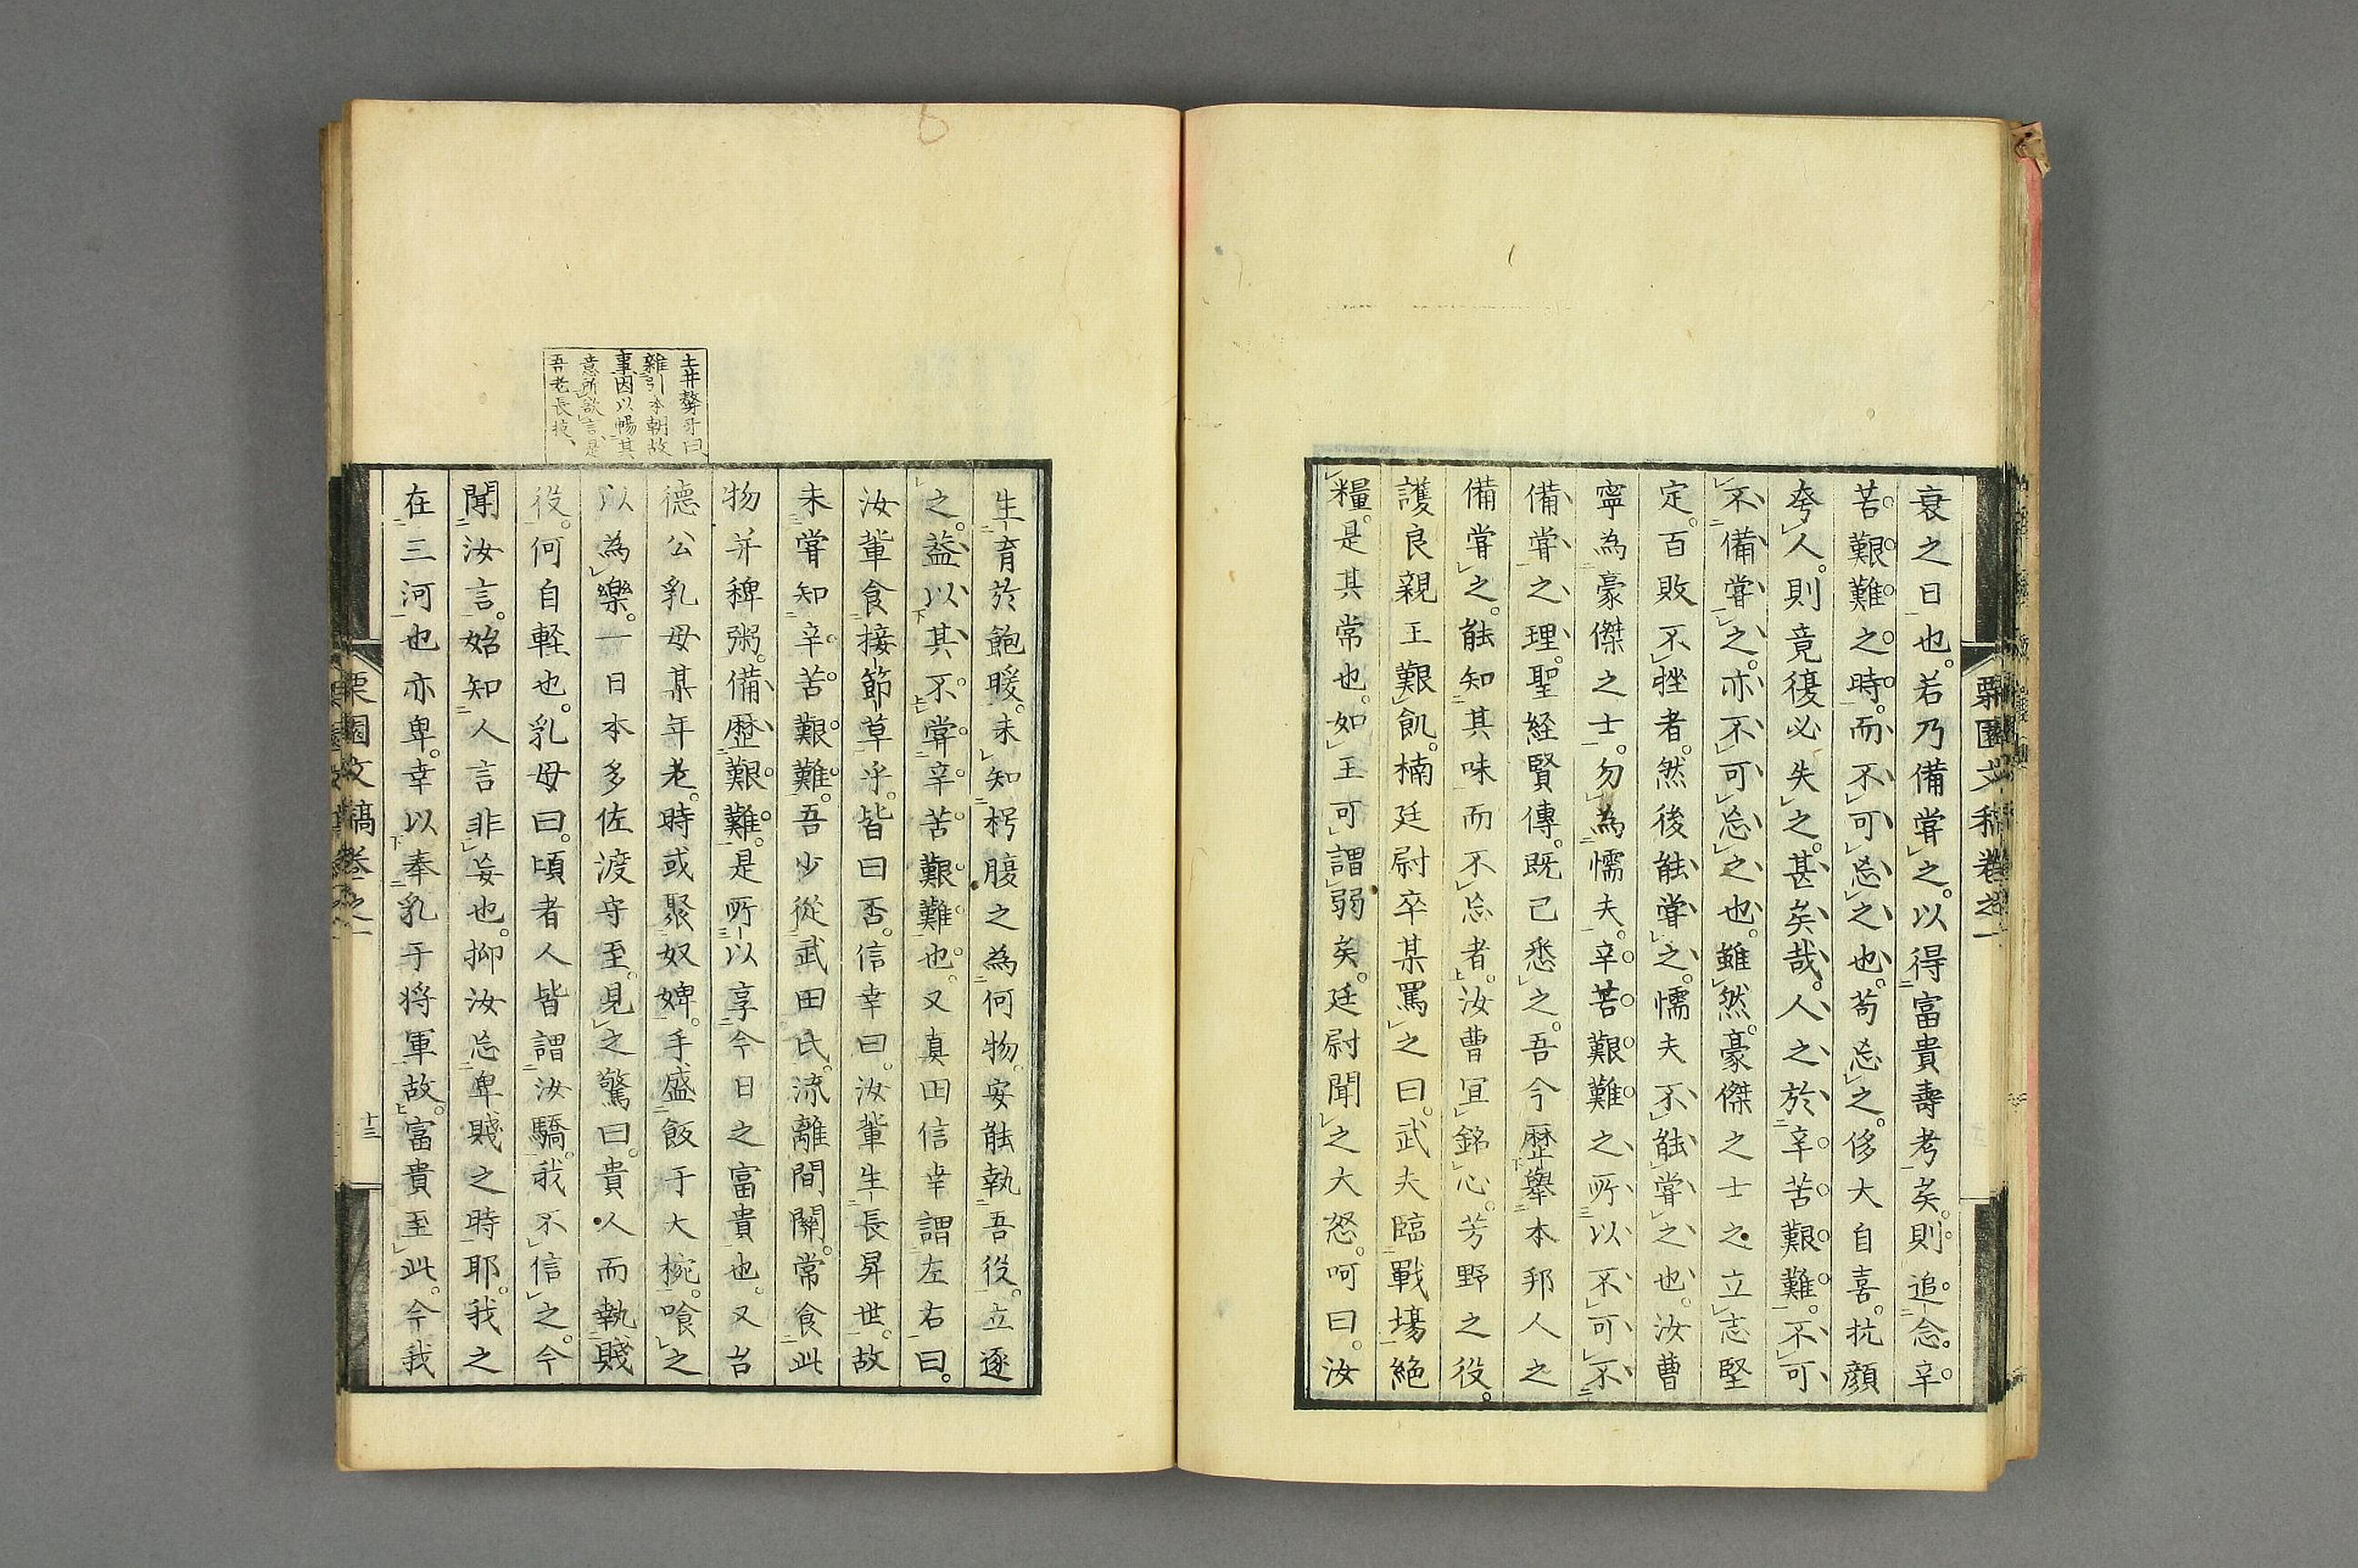 衰之日也。若乃備甞之。以得富貴壽考矣。則追念辛
苦艱難之時。而不可忘之也。苟忘之。侈大自喜。抗顔
夸人。則竟復必失之。甚矣哉。人之於辛苦艱難。不可
不備甞之。亦不可忘之也。雖然。豪傑之士之立志堅
定。百敗不挫者。然後能甞之。懦夫不能甞之也。汝曹
寧為豪傑之士。勿為懦夫。辛苦艱難之所以不可不
備甞之理。聖経賢傳。既已悉之。吾今歴舉本邦人之
備甞之。能知其味而不忘者。汝曹冝銘心。芳野之役。
護良親王艱飢。楠廷尉卒某罵之曰。武夫臨戰塲絶
糧。是其常也。如王可謂弱矣。廷尉聞之大怒。呵曰。汝
栗園文稿卷之一
生育於飽暖。未知枵腹之為何物。安能執吾役。立逐
之。葢以其不甞辛苦艱難也。又真田信幸謂左右曰。
汝軰食接節草乎。皆曰否。信幸曰。汝軰生長昇世。故
未甞知辛苦艱難。吾少從武田氏。流離間關。常食此
物并稗粥。備歴艱難。是所以享今日之富貴也。又台
德公乳母某年老。時或聚奴婢。手盛飯于大椀。喰之
以為樂。一日本多佐渡守至。見之驚曰。貴人而執賤
役。何自軽也。乳母曰。頃者人皆謂汝驕。我不信之。今
聞汝言。始知人言非妄也。抑汝忘卑賤之時耶。我之
在三河也亦卑。幸以奉乳于将軍故。富貴至此。今我
土井聱牙曰
雜引本朝故
事因以暢其
意所欲言、是
吾老長技、
栗園文稿卷之一
十三